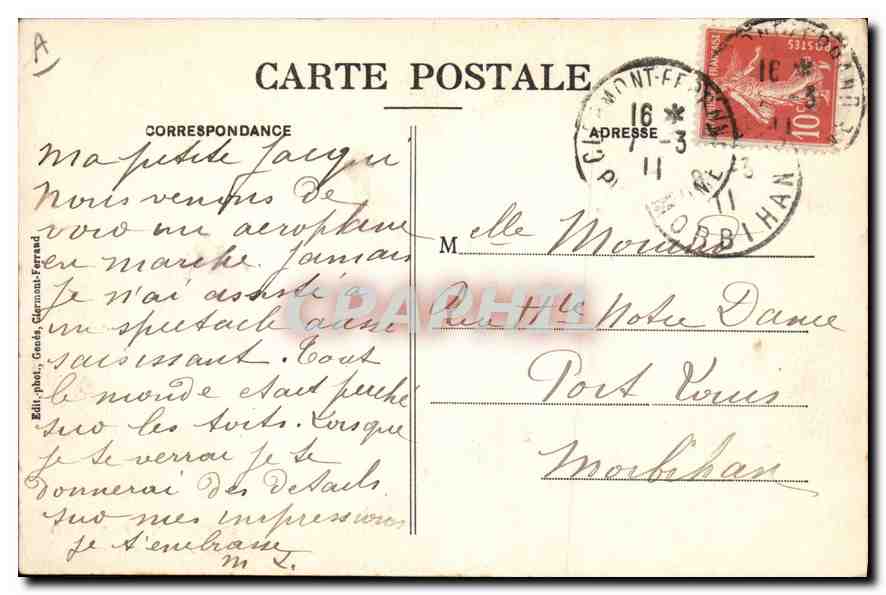 A
CARTE POSTALE
CORRESPONDANCE
ADRESSE
Ma petite Jacqui
nous venons de
voir un aeroplane
en marche. Jamais
je n'ai assisté a
un spectacle aussi
saisissant. Tout
le monde etait perché
sur les toits. Lorsque
je te verrai je te
donnerai des details
sur mes impressions
je t'embrasse
M L.
Edit.-phot., Genès, Clermont-Ferrand
Melle
Rue Hte Notre Dame
Port Louis
Morbihan
CLERMONT-FERRAND
16 *
7 -3
11
P DE DOME
ORBIHAN
-3
11
16 *
-3
11
POSTES
FRANÇAISE
10c
CPAPHIL